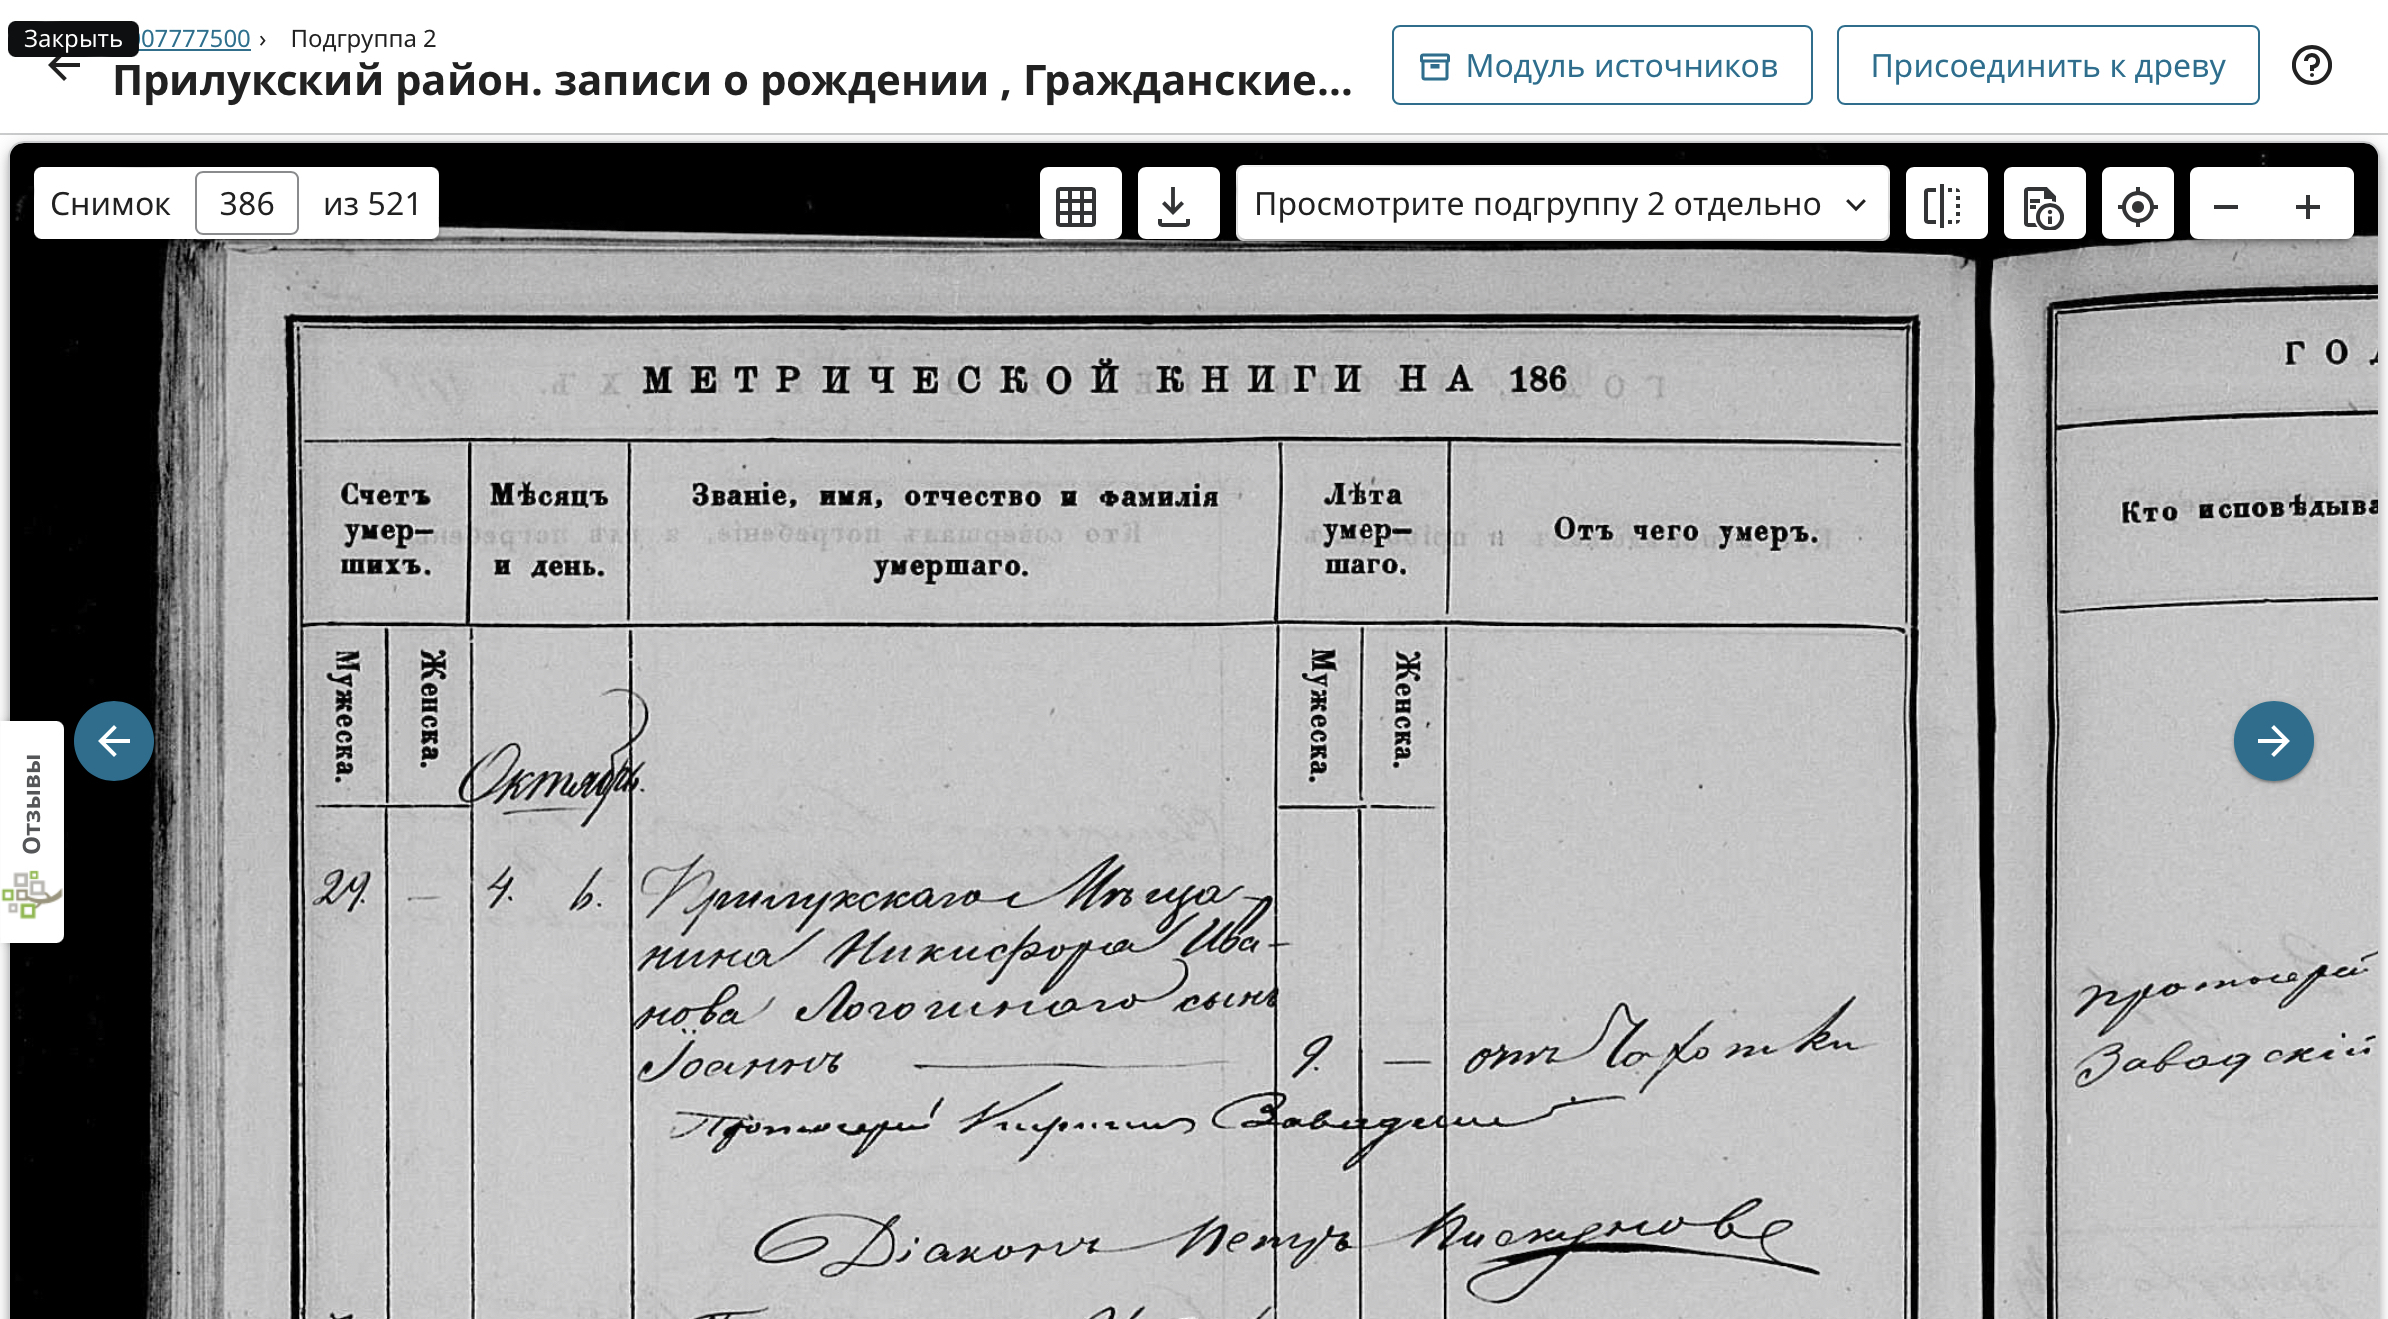 Закрыть
07777500 › Подгруппа 2
Прилукский район. записи о рождении , Гражданские...
Модуль источников
Присоединить к древу
Снимок 386 из 521
Просмотрите подгруппу 2 отдельно
Отзывы
МЕТРИЧЕСКОЙ КНИГИ НА 186
Счетъ умер—шихъ.
Мѣсяцъ и день.
Званіе, имя, отчество и фамилія умершаго.
Лѣта умер—шаго.
Отъ чего умеръ.
Мужеска.
Женска.
Мужеска.
Женска.
Октябрь.
29. — 4. 6. Прилукскаго Мѣща-
нина Никифора Ива-
нова сынъ
Іоаннъ — 9. — отъ Чахотки
Протоіерей Кирилъ Заводскій
Діаконъ Петръ Пискуновъ
ГОД
Кто исповѣдыва
протоіерей
Заводскій